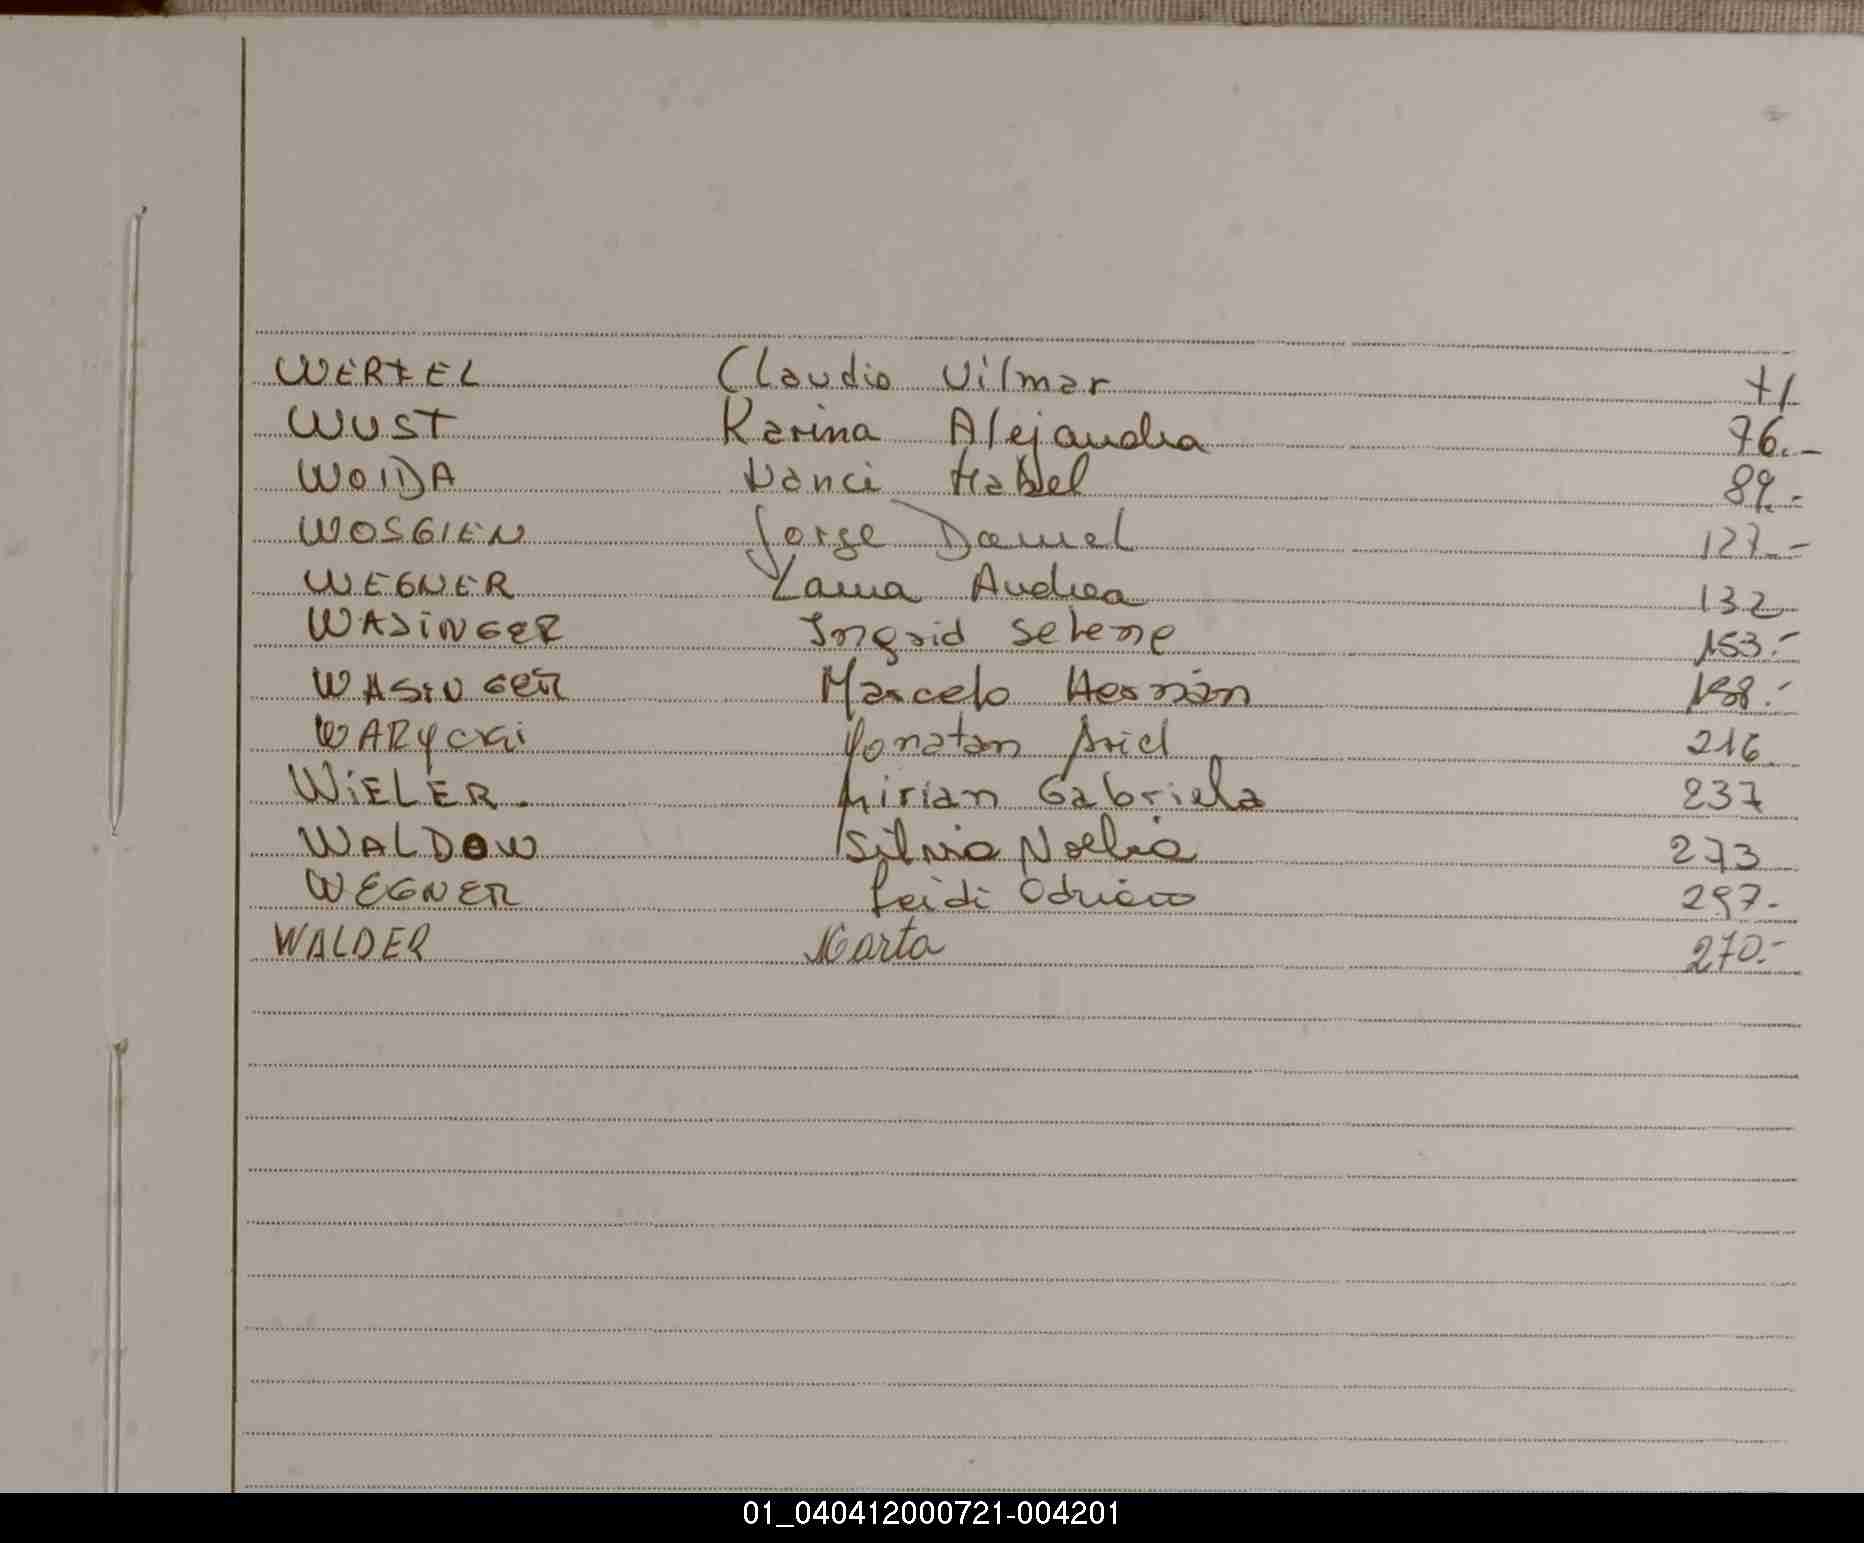 WERTEL Claudio Vilmar 41
WUST Karina Alejandra 76.-
WOIDA Nanci Mabel 89.-
WOSGIEN Jorge Daniel 127.-
WEGNER Laura Andrea 132
WASiNGER Ingrid Selene 153.-
WASiNGER Marcelo Hernán 158.-
WARYCKi Yonatan Ariel 216
WiELER. Mirian Gabriela 237
WALDOW Silvia Noelia 273
WEGNER Leidi 297.-
WALDER Marta 270.-
01_040412000721-004201